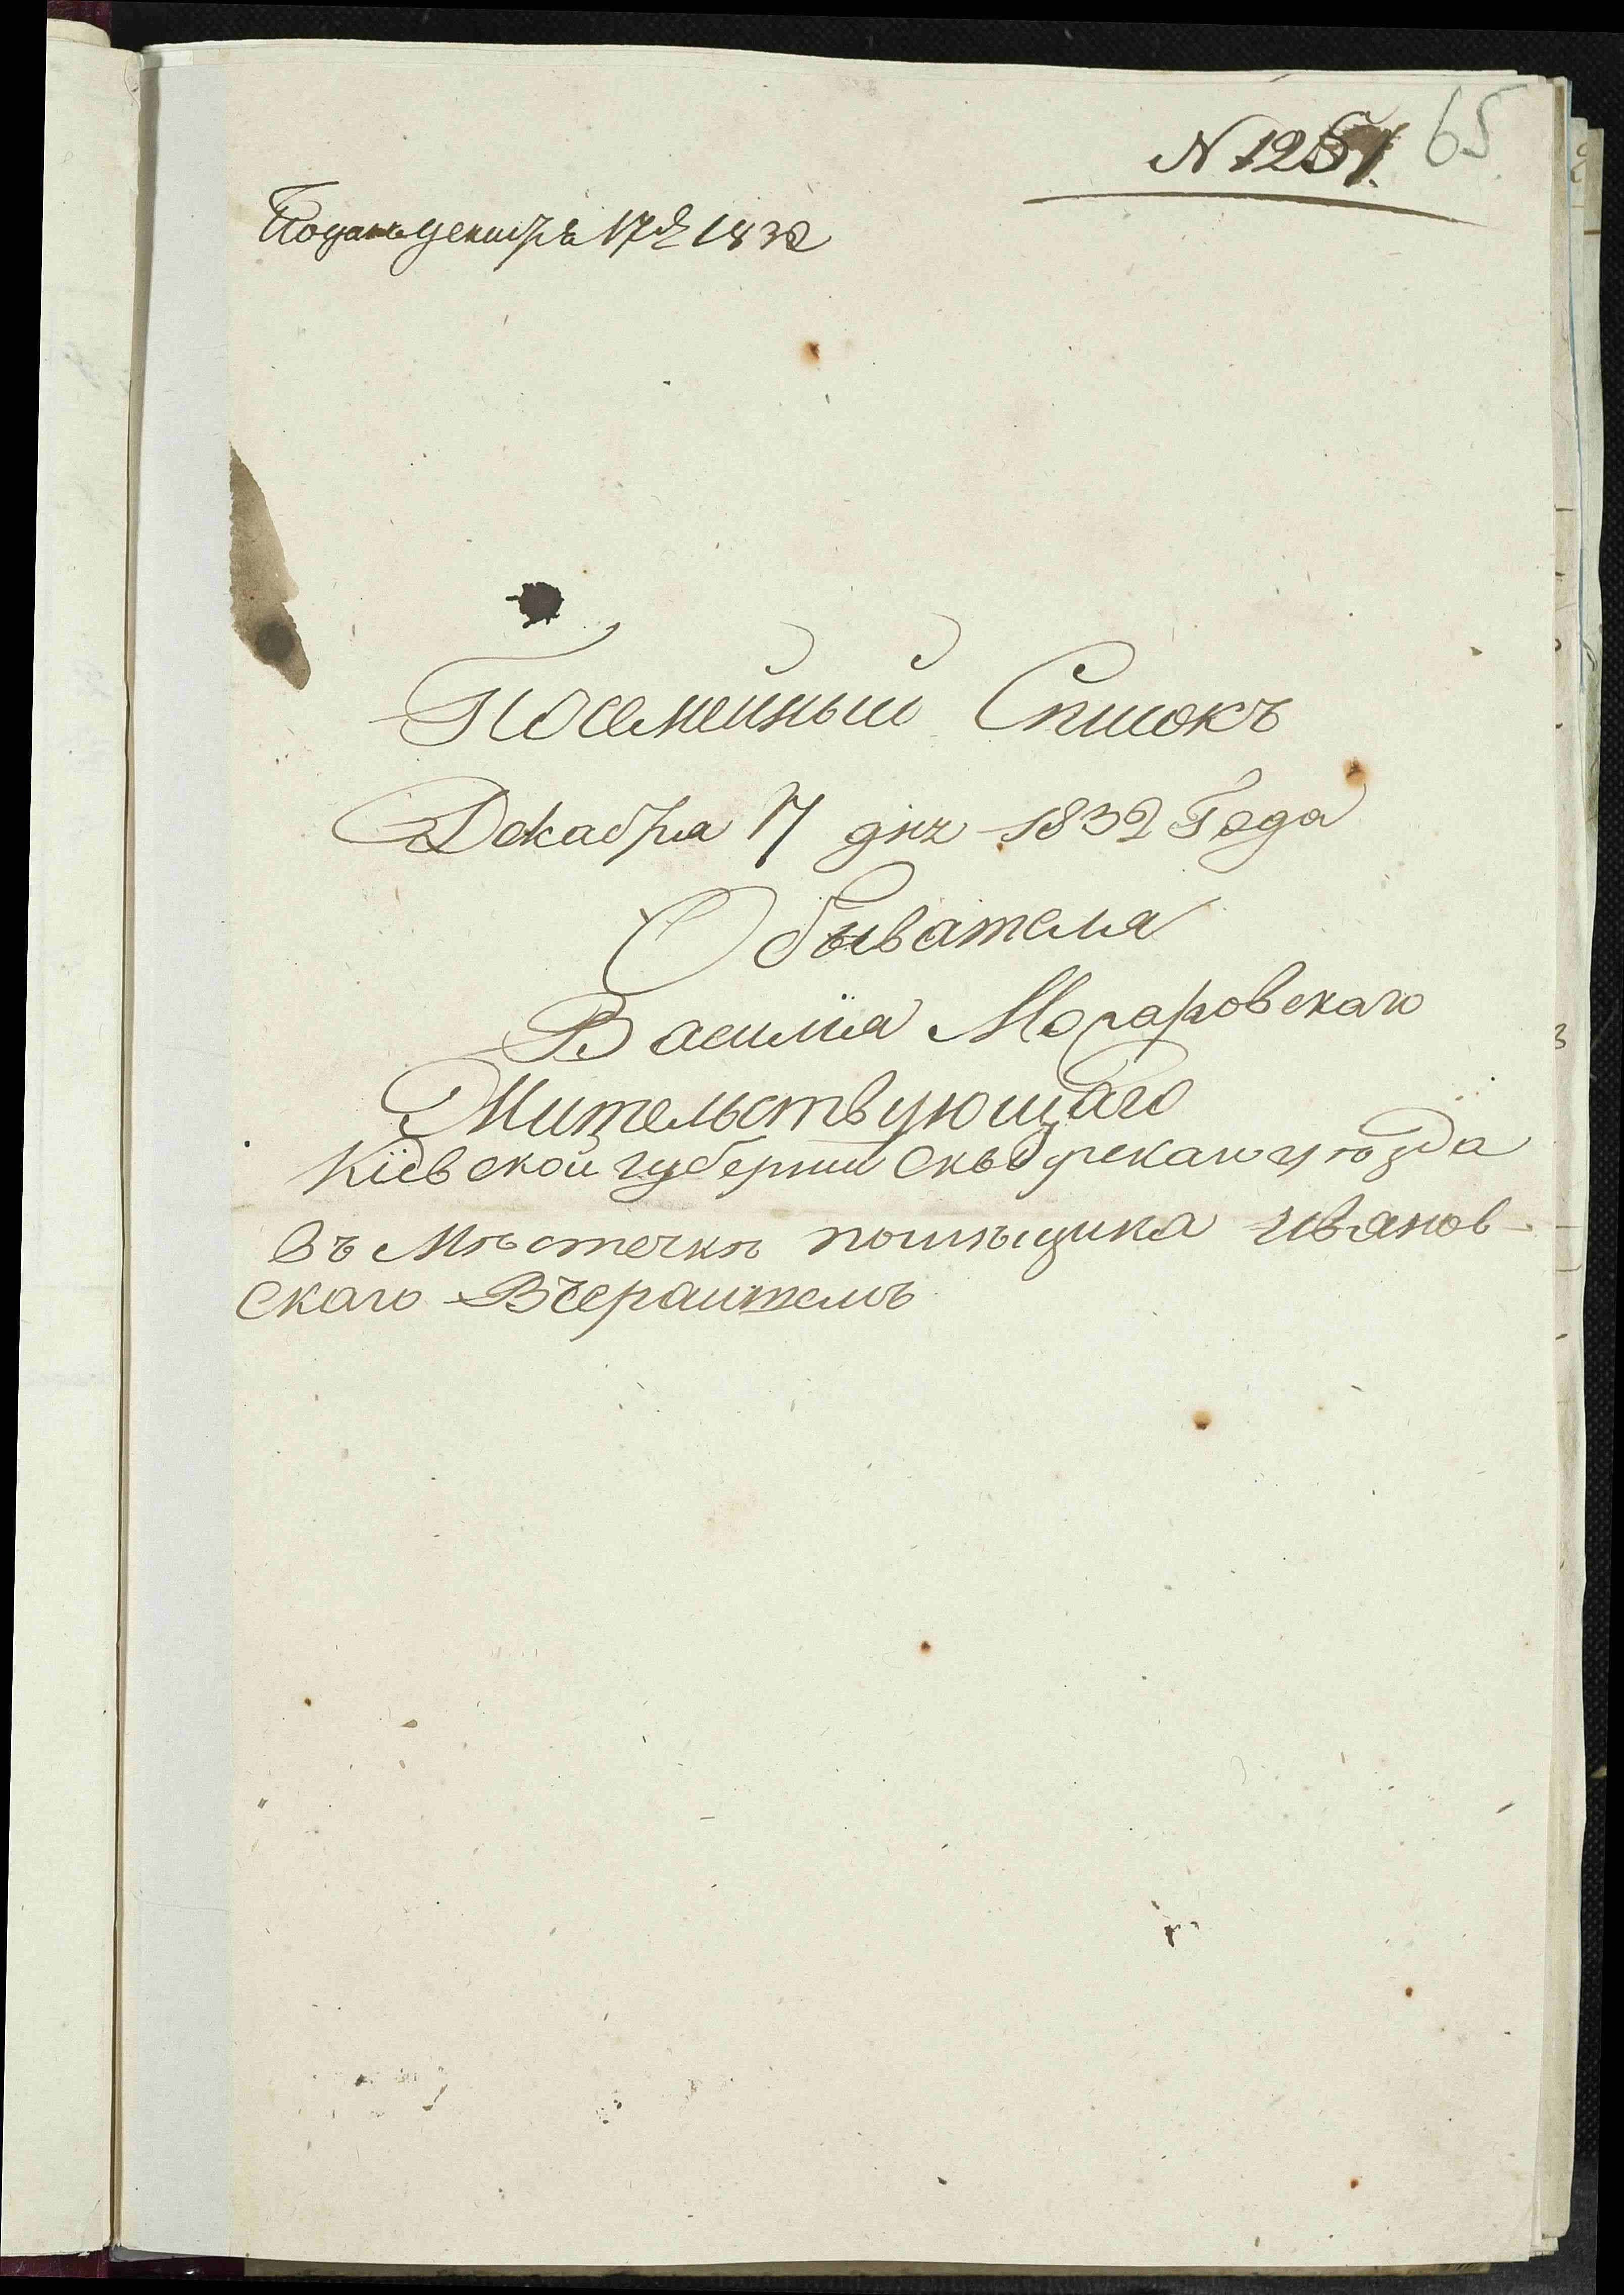 N 1251. 65
Поданъ декабря 17 д 1832
Посемейный Списокъ
Декабря 17 дня 1832 Года
Обывателя
Василія Могаровскаго
Жительствующаго
Кіевской губерніи Сквирскаго уѣзда
Въ Мѣстечкѣ помѣщика Иванов-
скаго Вчерайшемъ